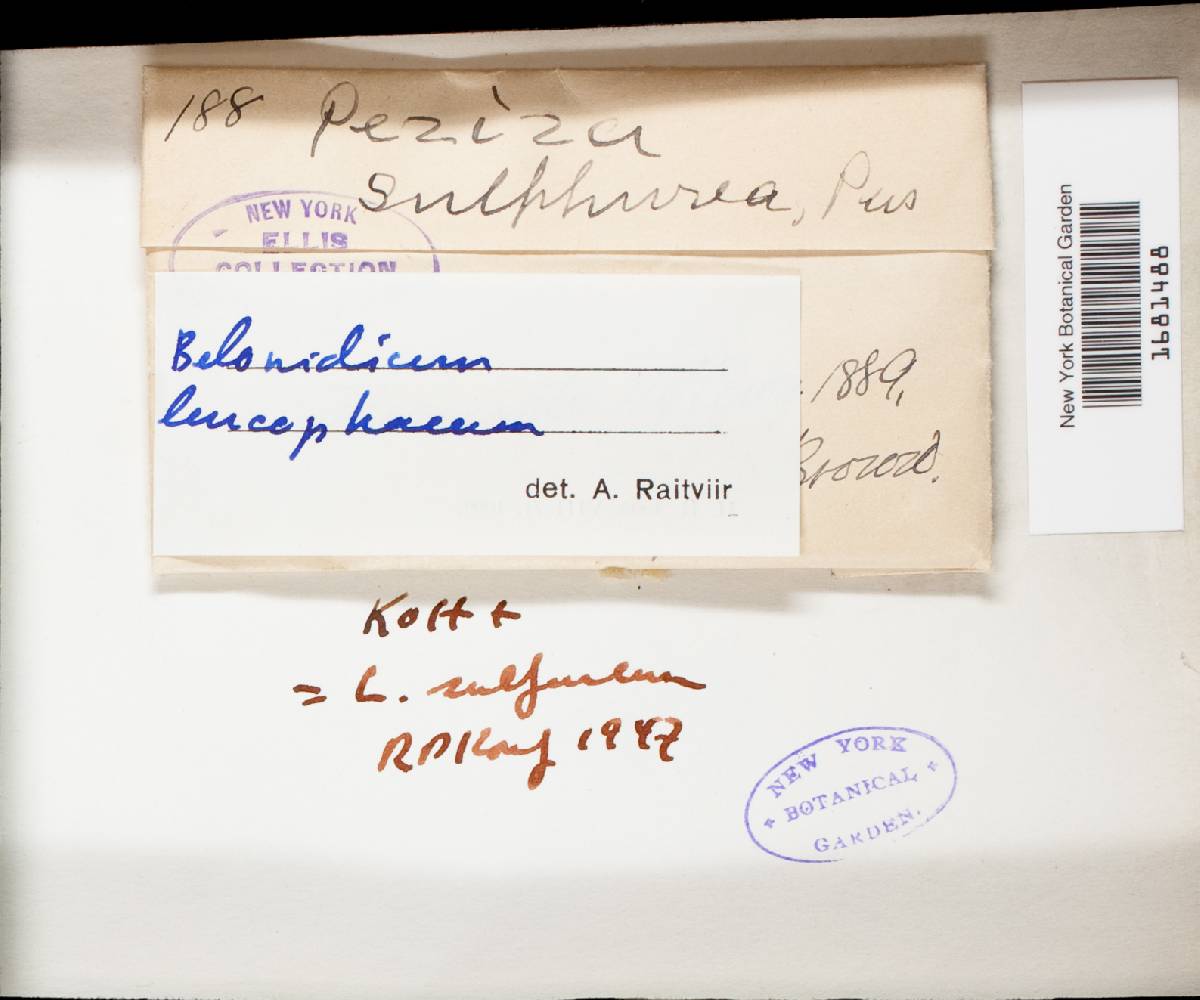 188 Peziza
sulphurea, Pers
NEW YORK
ELLIS
COLLECTION
1889.
Belonidium
leucophaeum
det. A. Raitviir
KOH +
= L. sulfureum
RPKorf 1947
NEW YORK
BOTANICAL
GARDEN.
New York Botanical Garden
1681488